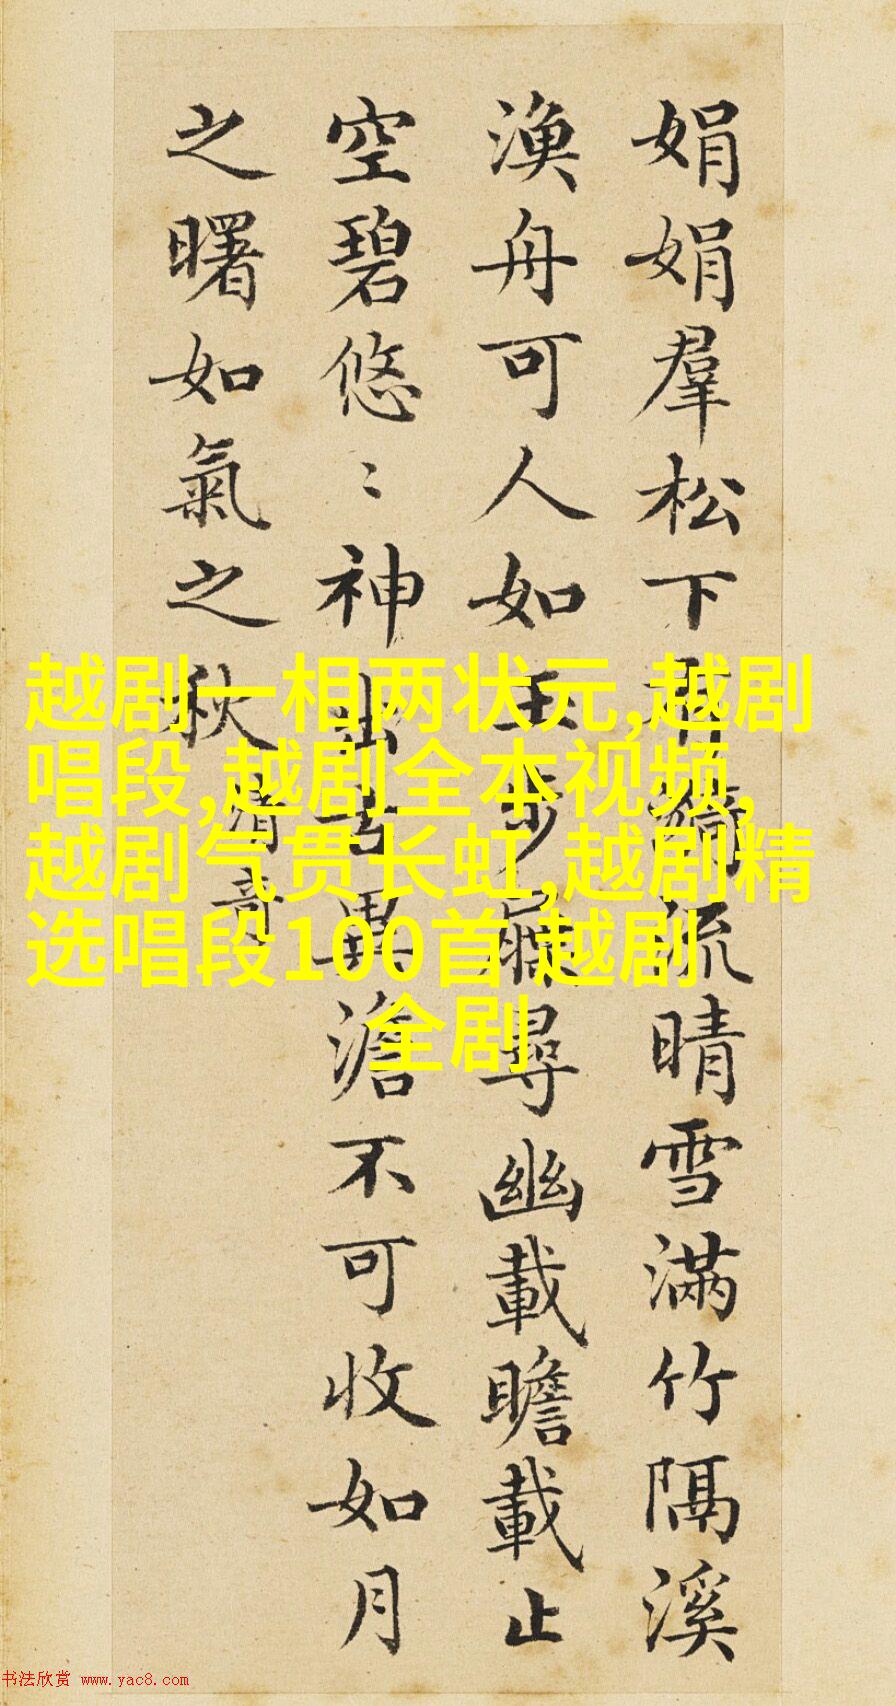 娟娟羣松下有漪流晴雪滿竹隔溪
漁舟可人如玉步屧尋幽載瞻載止
空碧悠〻神出古異澹不可收如月
之曙如氣之秋
清奇
越剧一相两状元,越剧
唱段,越剧全本视频,
越剧气贯长虹,越剧精
选唱段100首 越剧
全剧
书法欣赏 www.yac8.com